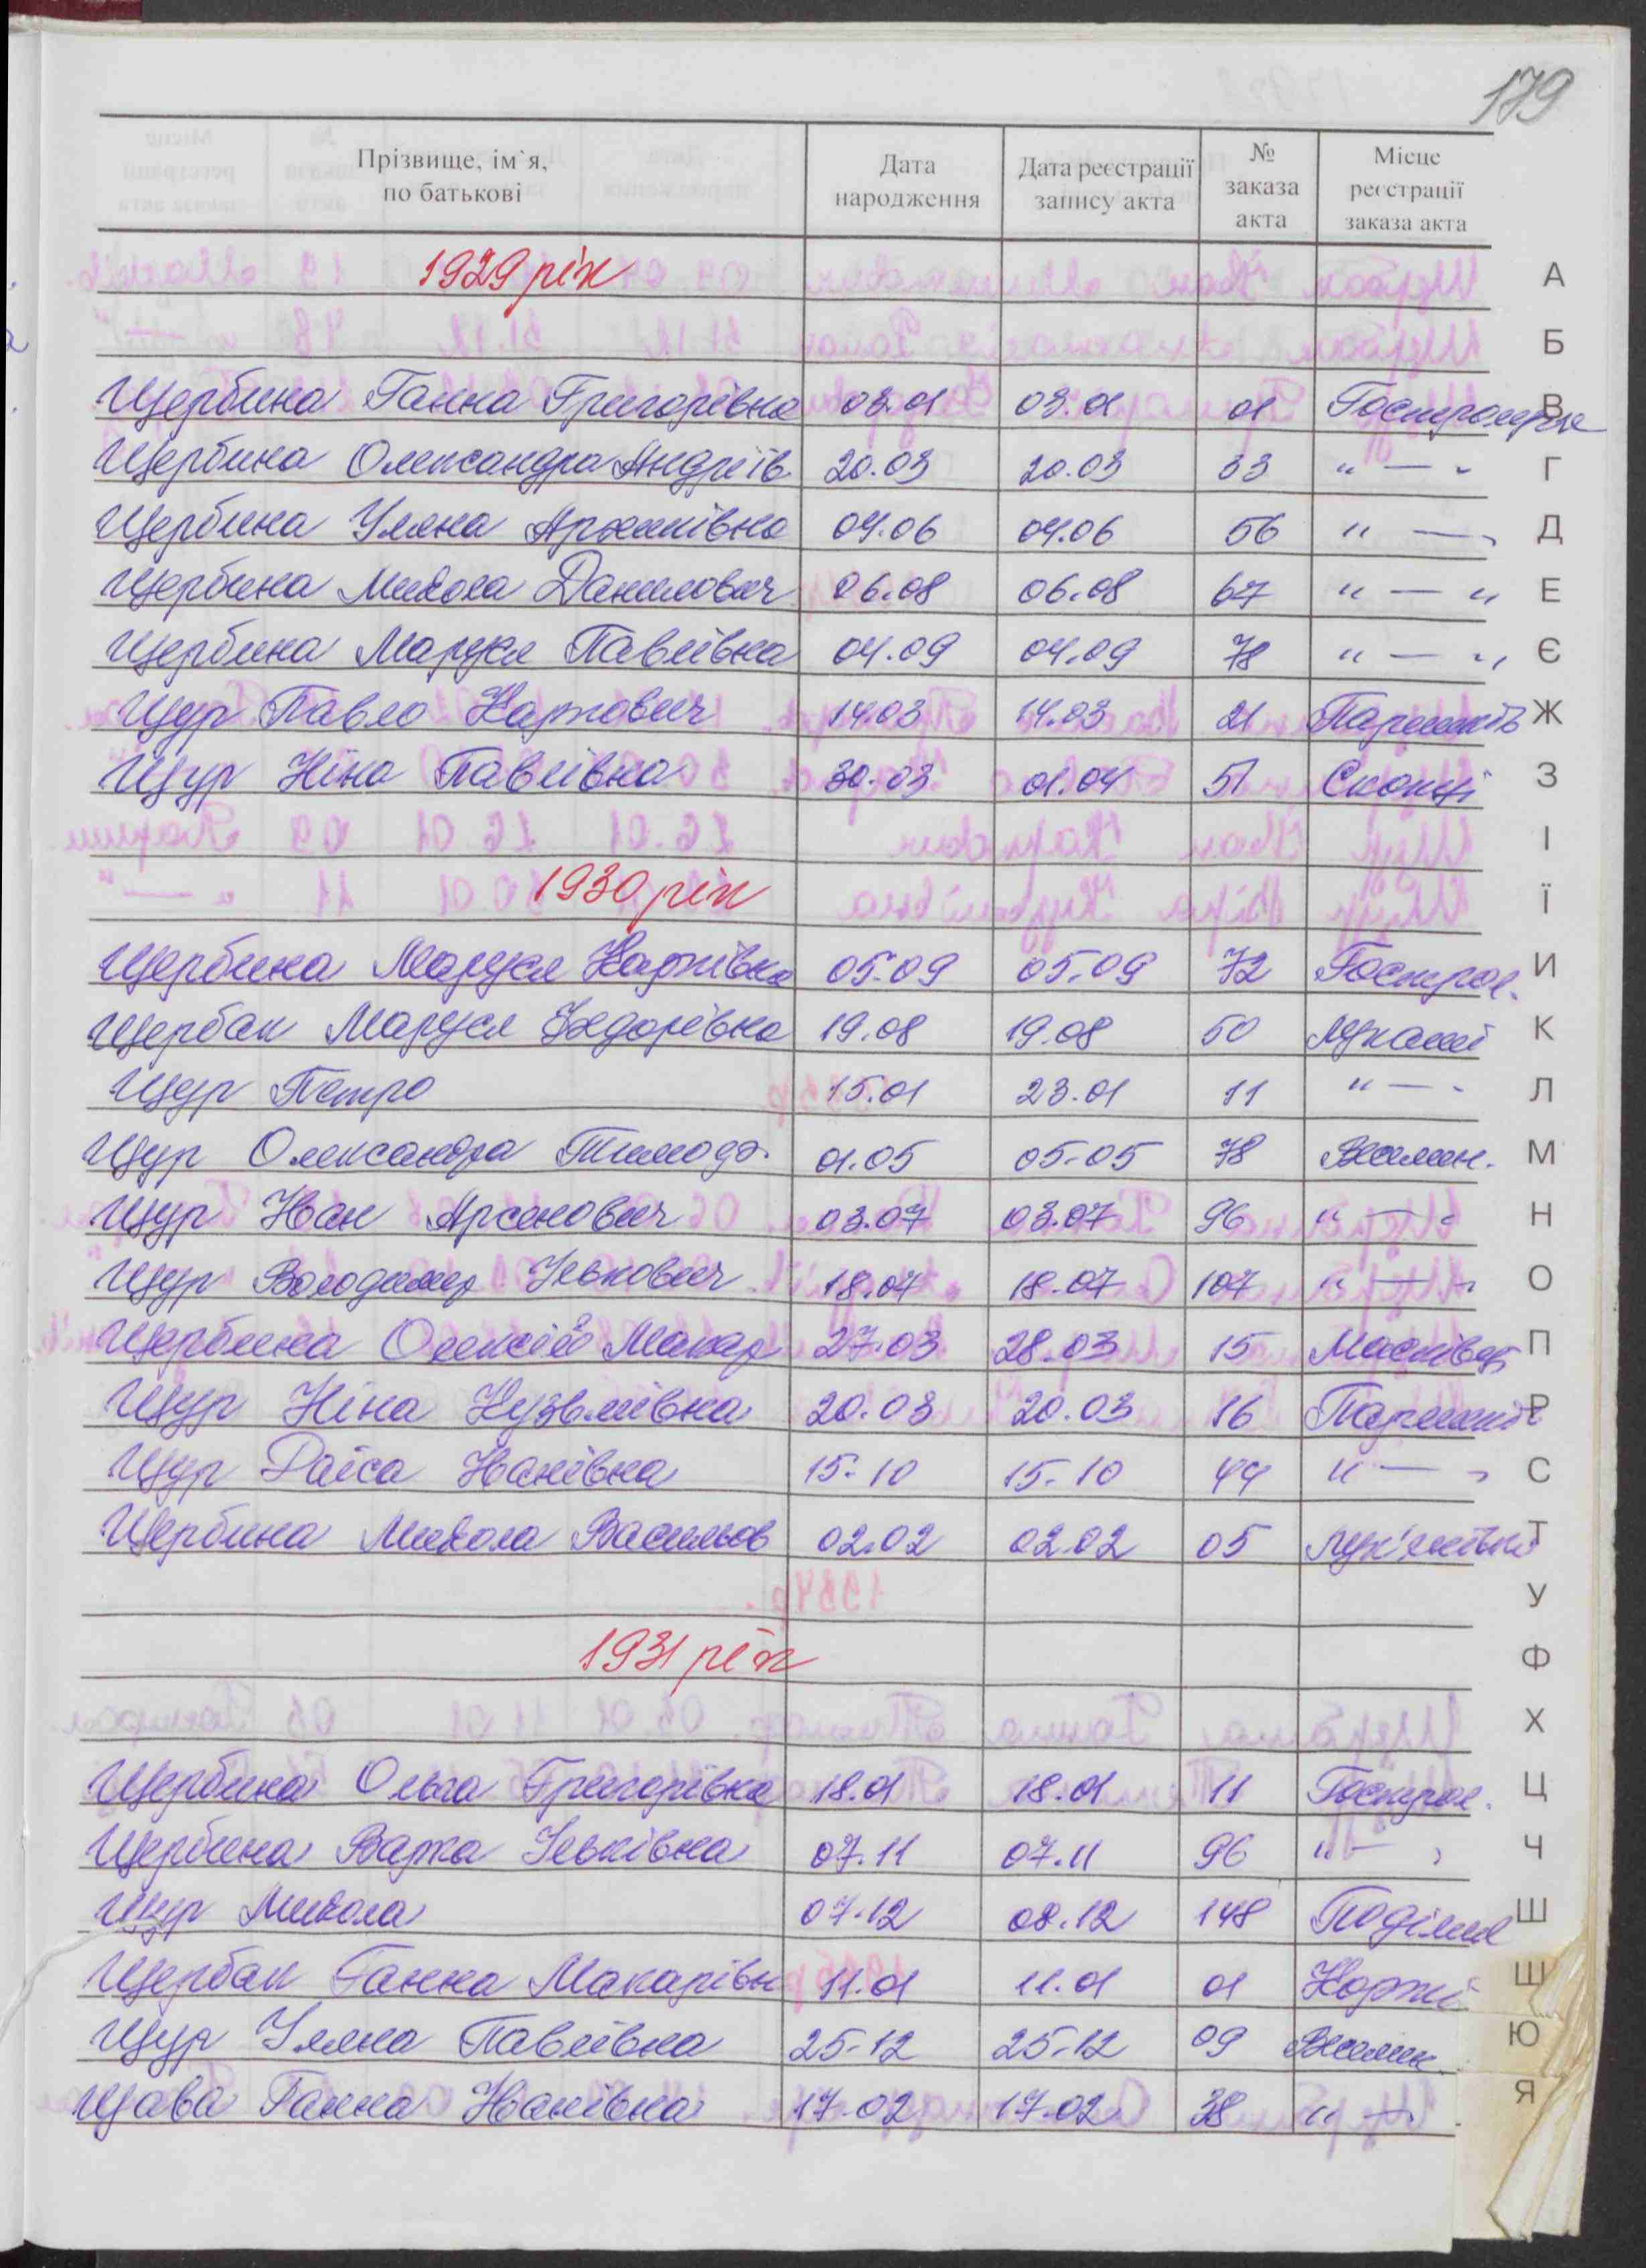 179
Прізвище, ім`я, по батькові | Дата народження | Дата реєстрації запису акта | № заказа акта | Місце реєстрації заказа акта
1929 рік
Щербина Ганна Григорівна 03.01 03.01 01
Щербина Олександра Андріїв. 20.03 20.03 33 " — "
Щербина Уляна 04.06 04.06 56 " — "
Щербина Микола Данилович 06.08 06.08 67 " — "
Щербина Маруся Павлівна 04.09 04.09 78 " — "
Щур Павло Карпович 14.03 14.03 21
Щур Ніна Павлівна 30.03 01.04 51 Скопці
1930 рік
Щербина Маруся Карпівна 05.09 05.09 72 Гострол.
Щербак Маруся Федорівна 19.08 19.08 50 Лукаші
Щур Петро 15.01 23.01 11 " — "
Щур Олександра Тимофі. 01.05 05.05 78
Щур Іван Арсенович 03.07 03.07 96 " — "
Щур Володимир Ількович 18.07 18.07 107 " — "
Щербина Олексій Макар 27.03 28.03 15 Масківці
Щур Ніна Кузьмівна 20.03 20.03 16
Щур Раїса Іванівна 15.10 15.10 44 " — "
Щербина Микола Васильов 02.02 02.02 05
1931 рік
Щербина Ольга Григорівна 18.01 18.01 11 Гострол.
Щербина Варка Ільківна 07.11 07.11 96 " — "
Щур Микола 07.12 08.12 148
Щербак Ганна Макарівн 11.01 11.01 01 Коржі
Щур Уляна Павлівна 25.12 25.12 09
Щава Ганна Іванівна 17.02 17.02 38 " — "
А
Б
В
Г
Д
Е
Є
Ж
З
І
Ї
И
К
Л
М
Н
О
П
Р
С
Т
У
Ф
Х
Ц
Ч
Ш
Щ
Ю
Я